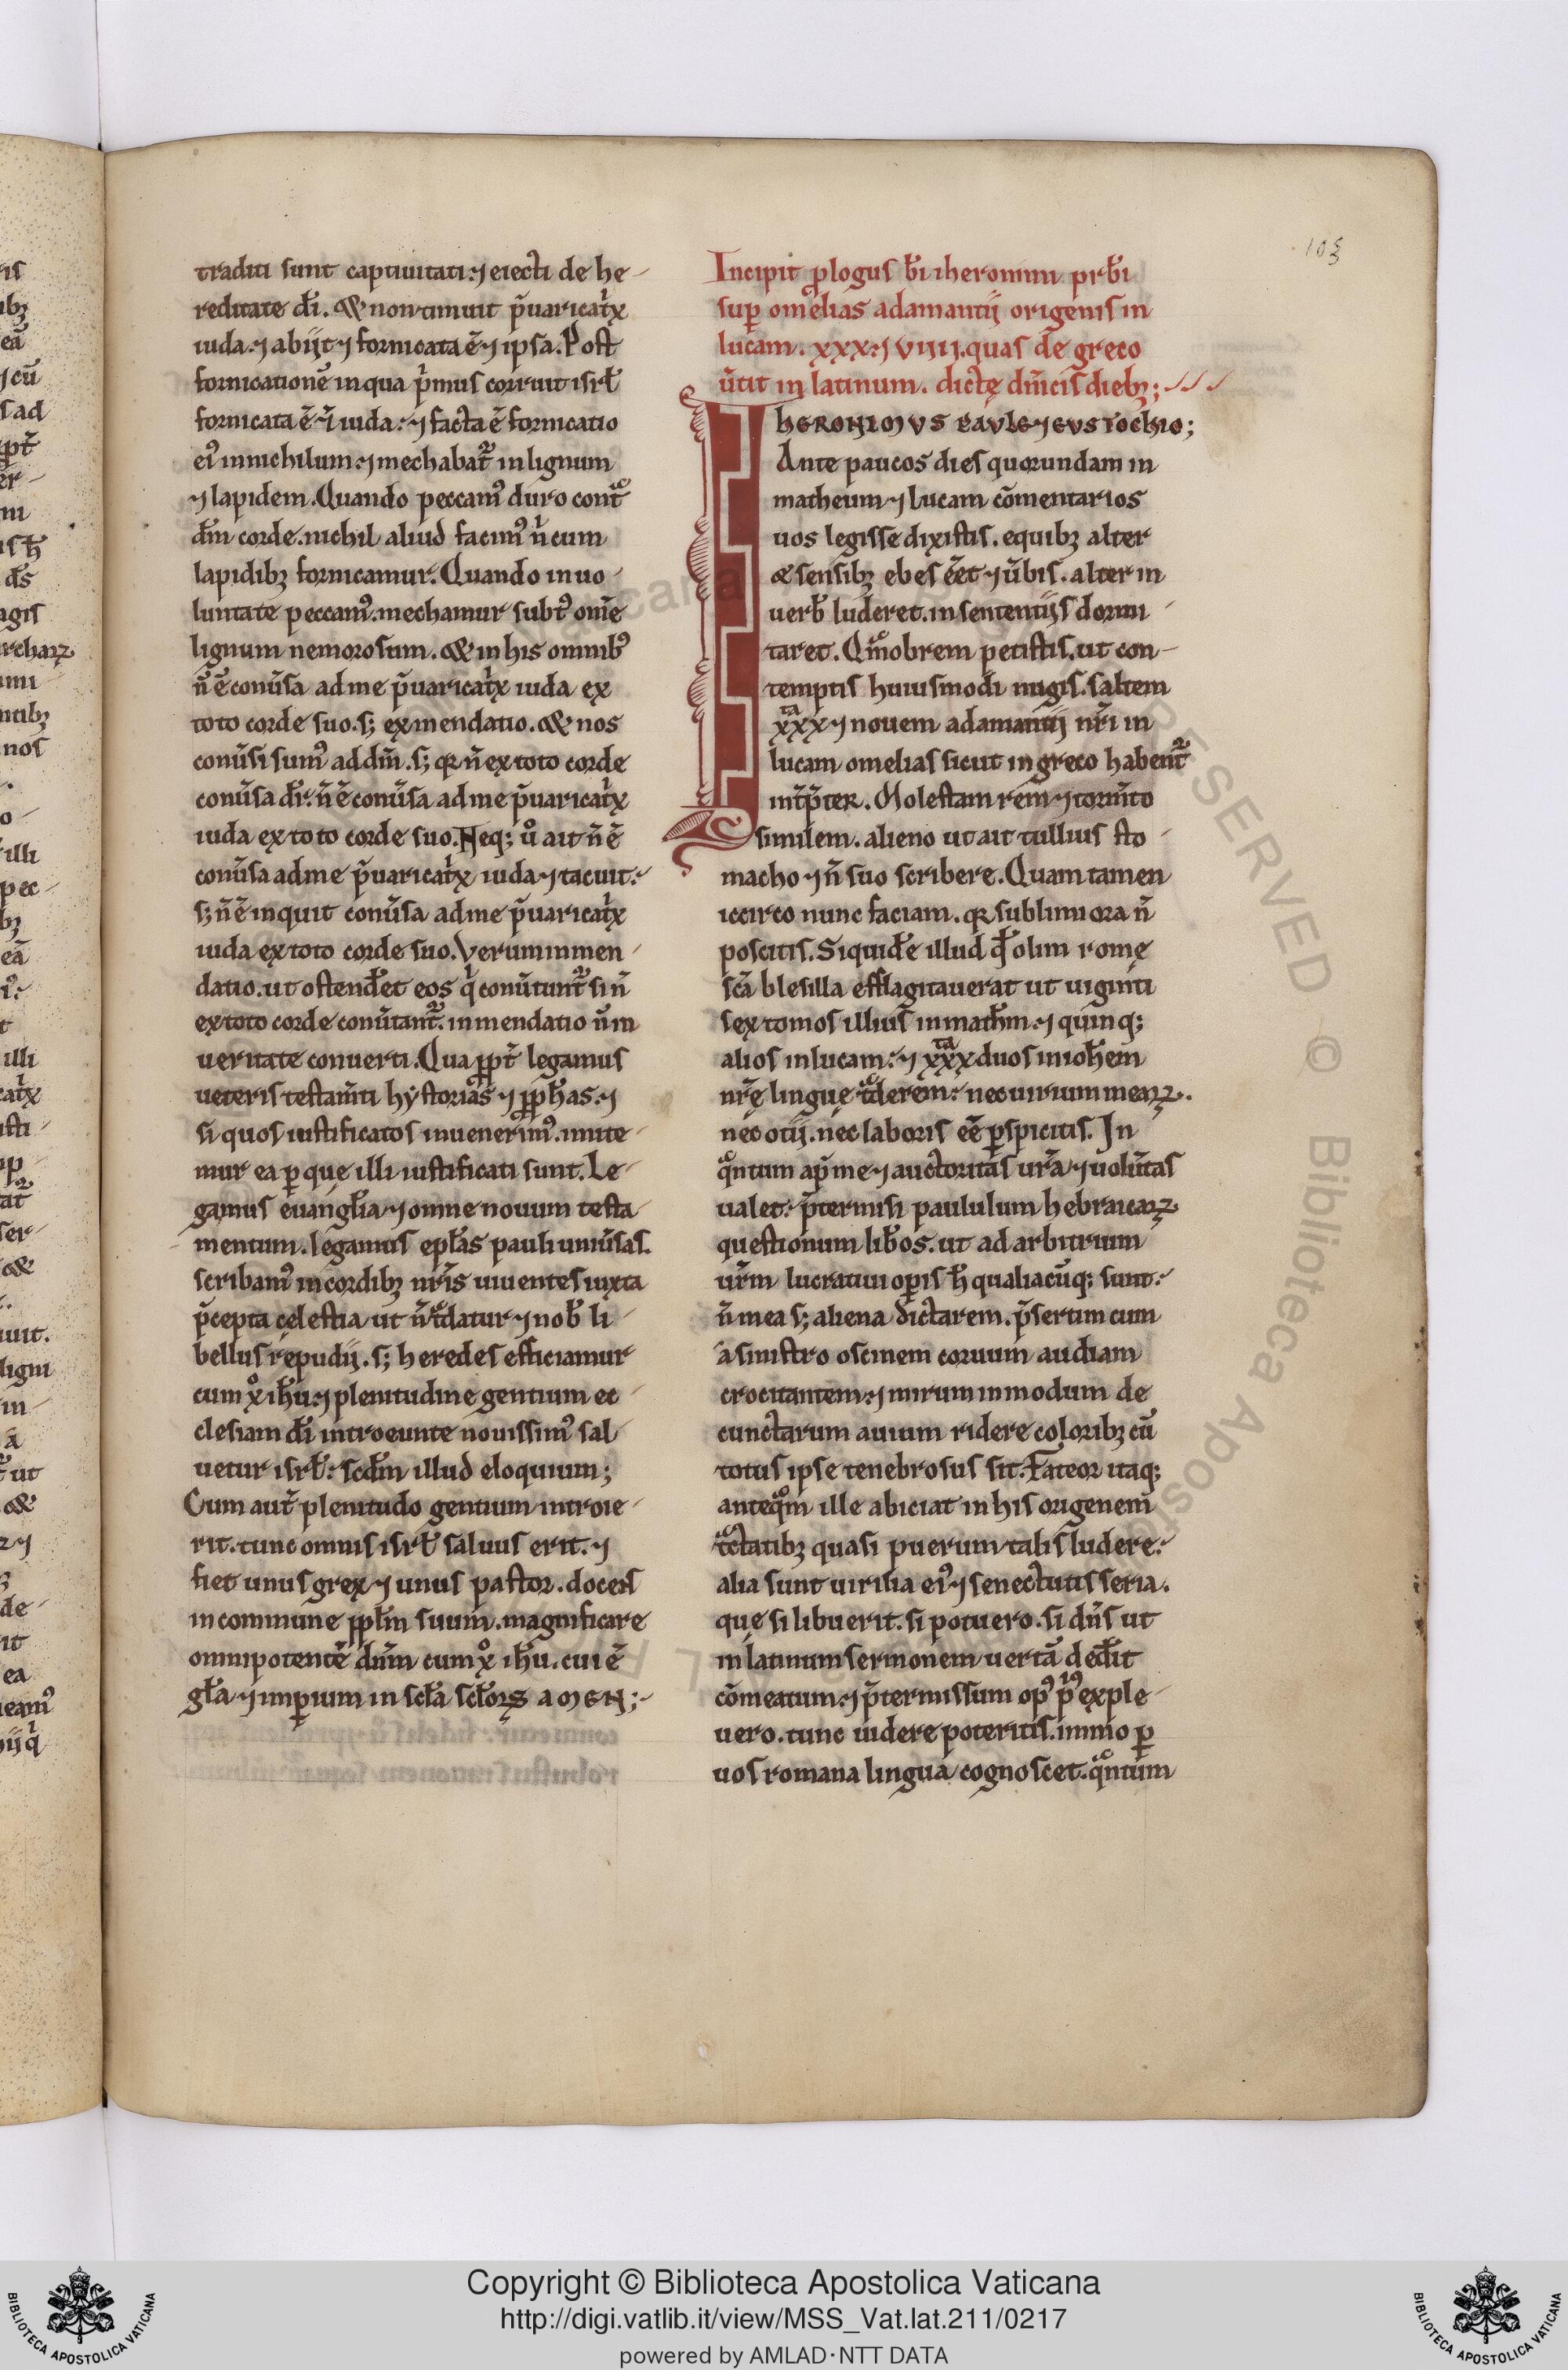 103
traditi sunt captiuitati. ⁊ eiecti de he-
reditate dī. & non timuit p̄uaricatͥx
iuda. ⁊ abijt ⁊ fornicata ē ⁊ ipsa. Post
fornicationē in qua pͥmus corruit isrł
fornicata ē ⁊ iuda. ⁊ facta ē fornicatio
eiꝰ in nichilum. ⁊ mechabat᷑ in lignum
⁊ lapidem. Quando peccamꝰ duro contᵃ
dm̄ corde. nichil aliud facimꝰ nͥ cum
lapidibꝫ fornicamur. Quando in uo-
luntate peccamꝰ. mechamur subtꝰ om̄e
lignum nemorosum. & in his omnibꝰ
n̄ ē conūsa ad me p̄uaricatͥx iuda ex
toto corde suo. sꝫ ex mendatio. & nos
conūsi sumꝰ ad dm̄. sꝫ qꝛ n̄ ex toto corde
conūsa dr̄. n̄ ē conūsa ad me p̄uaricatͥx
iuda ex toto corde suo. Neqꝫ uͦ ait n̄ ē
conūsa ad me p̄uaricatͥx iuda ⁊ tacuit.
sꝫ n̄ ē inquit conūsa ad me p̄uaricatͥx
iuda ex toto corde suo. Verum in men-
datio. ut ostendet̄ eos qͥ conūtunt᷑ si n̄
ex toto corde conūtant᷑. in mendatio n̄ in
ueritate conuerti. Qua ꝓpt̄ legamus
ueteris testam̄ti hystorias ⁊ ꝓph̄as. ⁊
si quos iustificatos inuenerimꝰ. imite-
mur ea ꝑ que illi iustificati sunt. Le-
gamus euangl̄ia ⁊ omne nouum testa-
mentum. legamus epl̄as pauli uniūsas.
scribamꝰ in cordibꝫ nr̄is uiuentes iuxta
p̄cepta cęlestia ut n̄ tᵃdatur ⁊ nob̄ li-
bellus repudij. sꝫ heredes efficiamur
cum xͦ ih̄u. ⁊ plenitudine gentium ec-
clesiam dī introeunte nouissimꝰ sal-
uetur isrł. scd̄m illud eloquium;
Cum aut̄ plenitudo gentium introie-
rit. tunc omnis isrł saluus erit. ⁊
fiet unus grex ⁊ unus pastor. docens
in commune ppl̄m suum. magnificare
omnipotentē dn̄m cum xͦ ih̄u. cui ē
gl̄a ⁊ imꝑium in scl̄a scl̄oꝝ AMEN;
Incipit ꝓlogus bī iheronimi prb̄i
suꝑ omelias adamantij origenis in
lucam. xxx. ⁊ VIIII. quas de greco
ūtit in latinum. dictę dn̄icis diebꝫ;
IHERONIMVS PAVLE ⁊ EVSTOCHIO;
Ante paucos dies quorundam in
matheum ⁊ lucam cōmentarios
uos legisse dixistis. e quibꝫ alter
& sensibꝫ ebes eēt ⁊ ūbis. alter in
uerb̄ luderet. in sententijs dormi-
taret. Qᵃmobrem petistis. ut con-
temptis huiusmodi nugis. saltem
xxxᵗᵃ ⁊ nouem adamantij nr̄i in
lucam omelias sicut in greco habent᷑
int̄p̄ter. Molestam rem ⁊ torm̄to
similem. alieno ut ait tullius sto-
macho ⁊ n̄ suo scribere. Quam tamen
iccirco nunc faciam. qꝛ sublimiora n̄
poscitis. Siquidē illud qd̄ olim romę
scā blesilla efflagitauerat ut uiginti
sex tomos illius in math̄m. ⁊ quinqꝫ
alios in lucam. ⁊ xxxᵗᵃ duos in ioh̄em
nr̄ę linguę tᵃderem. nec uirium meaꝝ.
nec otij. nec laboris eē ꝑspicitis. In
qᵃntum ap̄ me ⁊ auctoritas ur̄a ⁊ uolūtas
ualet. p̄termisi paululum hebraicaꝝ
questionum lib̄os. ut ad arbitrium
ur̄m lucratiui oꝑis h̄ qualiacūqꝫ sunt.
n̄ mea sꝫ aliena dictarem. p̄sertim cum
a sinistro oscinem coruum audiam
crocitantem. ⁊ mirum in modum de
cunctarum auium ridere coloribꝫ cū
totus ipse tenebrosus sit. Fateor itaqꝫ
anteqᵃm ille abiciat in his origenem
tᵃctatibꝫ quasi puerum talis ludere.
alia sunt uirilia eiꝰ ⁊ senectutis seria.
quę si libuerit. si potuero. si dn̄s ut
in latinum sermonem uertā dedit̄
cōmeatum. ⁊ p̄termissum opꝰ pͥꝰ exple-
uero. tunc uidere poteritis. immo ꝑ
uos romana lingua cognoscet. qᵃntum
Copyright © Biblioteca Apostolica Vaticana
http://digi.vatlib.it/view/MSS_Vat.lat.211/0217
powered by AMLAD·NTT DATA
BIBLIOTECA APOSTOLICA VATICANA
BIBLIOTECA APOSTOLICA VATICANA